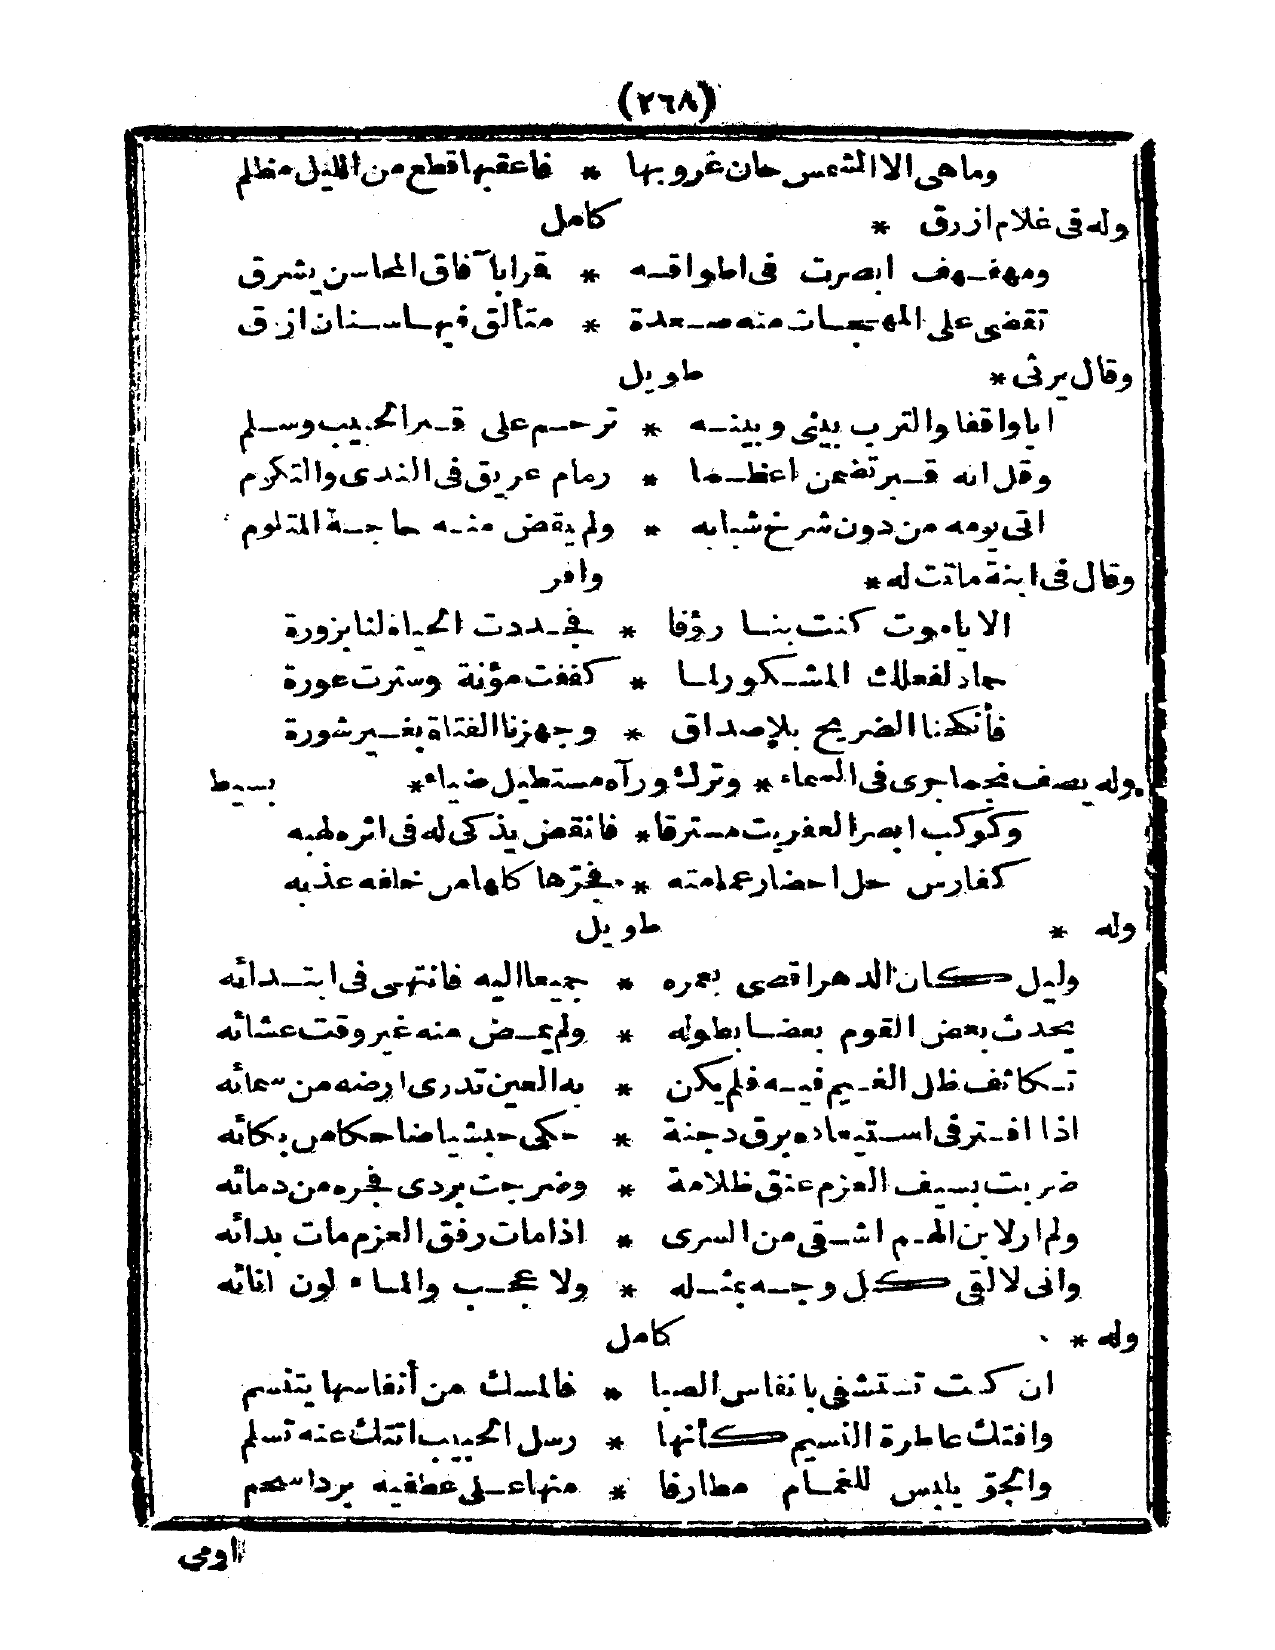 (٢٦٨)
وماهى الا الشمس حان غروبها * فاعقبها قطع من الليل مظلم
وله فى غلام ازرق * كامل
ومهفهف ابصرت فى اطواقه * قمرا بآفاق المحاسن يشرق
تقضى على المهجات منه صعدة * متألق فيها سنان ازرق
وقال يرثى * طويل
ايا واقفا والترب بينى وبينه * ترحم على قبر الحبيب وسلم
وقل انه قبر تضمن اعظما * رمام عريق فى الندى والتكرم
اتى يومه من دون شرخ شبابه * ولم يقض منه حاجة المتلوم
وقال فى ابنة ماتت له * وافر
الا ياموت كنت بنا رؤفا * فجددت الحياة لنا بزورة
حماد لفعلك المشكور لما * كففت مؤنة وسترت عورة
فأنكحنا الضريح بلا صداق * وجهزنا الفتاة بغير شورة
وله يصف نجما جرى فى السماء * وترك ورآه مستطيل ضياء * بسيط
وكوكب ابصر العفريت مسترقا * فانقض يذكى له فى اثره لهبه
كفارس حل احضار عمامته * فجرّها كلها من خلفه عذبه
وله * طويل
وليل كان الدهر اقصى بعمره * جميعا اليه فانتهى فى ابتدائه
يحدث بعض القوم بعضا بطوله * ولم يمض منه غير وقت عشائه
تكاثف ظل الغيم فيه فلم يكن * به العين تدرى ارضه من سمائه
اذا افتر فى استيعاده برق دجنة * حكى حبشيا ضاحكا من بكائه
ضربت بسيف العزم عنق ظلامة * وضرجت بردى فجره من دمائه
ولم ار لابن الهم اشقى من السرى * اذا مات رفق العزم مات بدائه
وانى لالقى كل وجه بمثله * ولا عجب والماء لون انائه
وله * كامل
ان كنت تستشفى بانفاس الصبا * فالمسك من أنفاسها يتنسم
وافتك عاطرة النسيم كأنها * رسل الحبيب اتتك عنه تسلم
والجوّ يلبس للغمام مطارفا * منها على عطفيه برد اسحم
اومى